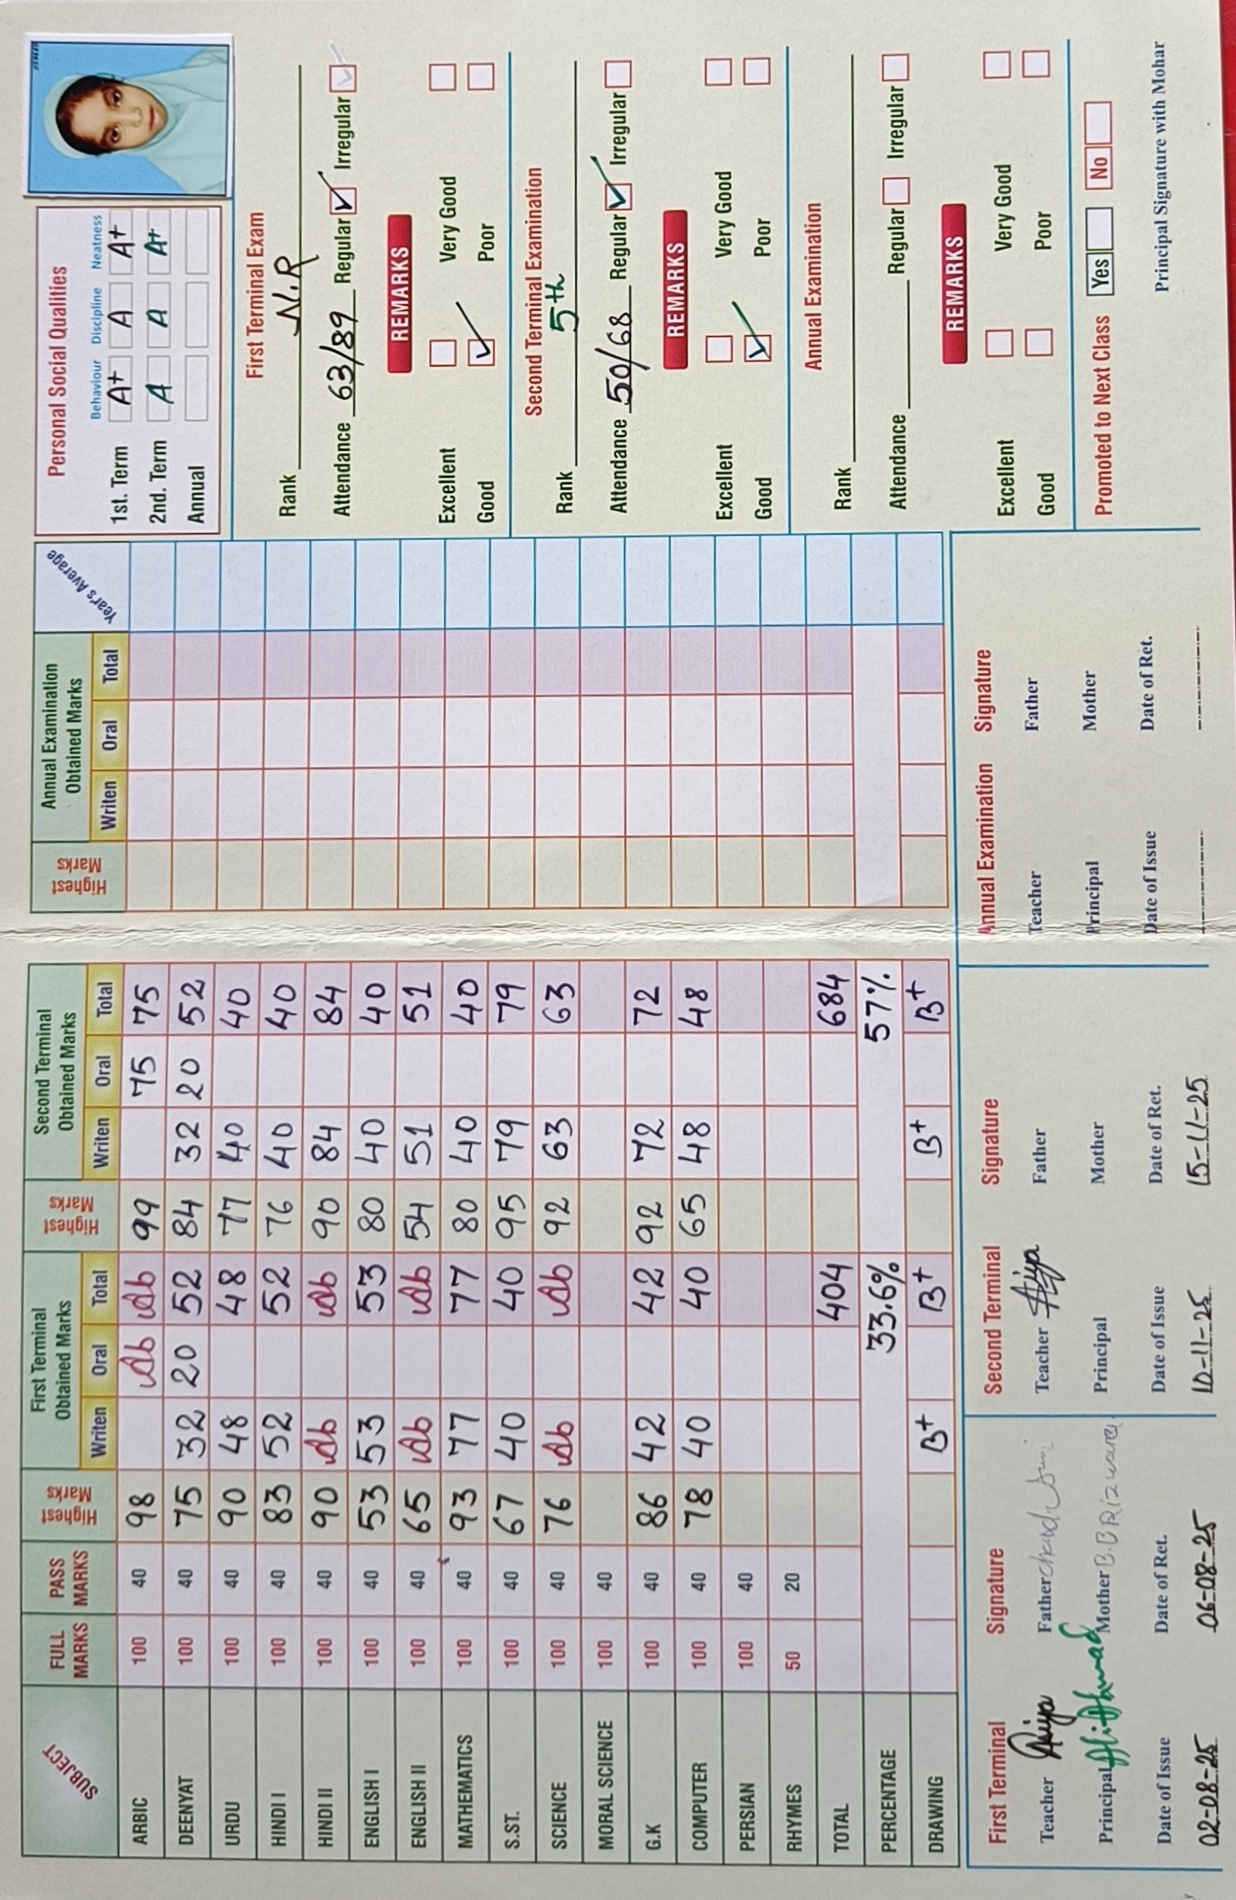 SUBJECT FULL MARKS PASS MARKS Highest Marks First Terminal Obtained Marks Highest Marks Second Terminal Obtained Marks Highest Marks Annual Examination Obtained Marks Year's Average
Writen Oral Total Writen Oral Total Writen Oral Total
ARBIC 100 40 98 Ab Ab 99 75 75
DEENYAT 100 40 75 32 20 52 84 32 20 52
URDU 100 40 90 48 48 77 40 40
HINDI I 100 40 83 52 52 76 40 40
HINDI II 100 40 90 Ab Ab 90 84 84
ENGLISH I 100 40 53 53 53 80 40 40
ENGLISH II 100 40 65 Ab Ab 54 51 51
MATHEMATICS 100 40 93 77 77 80 40 40
S.ST. 100 40 67 40 40 95 79 79
SCIENCE 100 40 76 Ab Ab 92 63 63
MORAL SCIENCE 100 40
G.K 100 40 86 42 42 92 72 72
COMPUTER 100 40 78 40 40 65 48 48
PERSIAN 100 40
RHYMES 50 20
TOTAL 404 684
PERCENTAGE 33.6% 57%
DRAWING B+ B+ B+ B+
First Terminal Signature
Teacher Father
Principal Mother
Date of Issue Date of Ret.
02-08-25 06-08-25
Second Terminal Signature
Teacher Father
Principal Mother
Date of Issue Date of Ret.
10-11-25 15-11-25
Annual Examination Signature
Teacher Father
Principal Mother
Date of Issue Date of Ret.
Personal Social Qualities
Behaviour Discipline Neatness
1st. Term A+ A A+
2nd. Term A A A+
Annual
First Terminal Exam
Rank N.R
Attendance 63/89 Regular Irregular
REMARKS
Excellent Very Good
Good Poor
Second Terminal Examination
Rank 5th
Attendance 50/68 Regular Irregular
REMARKS
Excellent Very Good
Good Poor
Annual Examination
Rank
Attendance Regular Irregular
REMARKS
Excellent Very Good
Good Poor
Promoted to Next Class Yes No
Principal Signature with Mohar